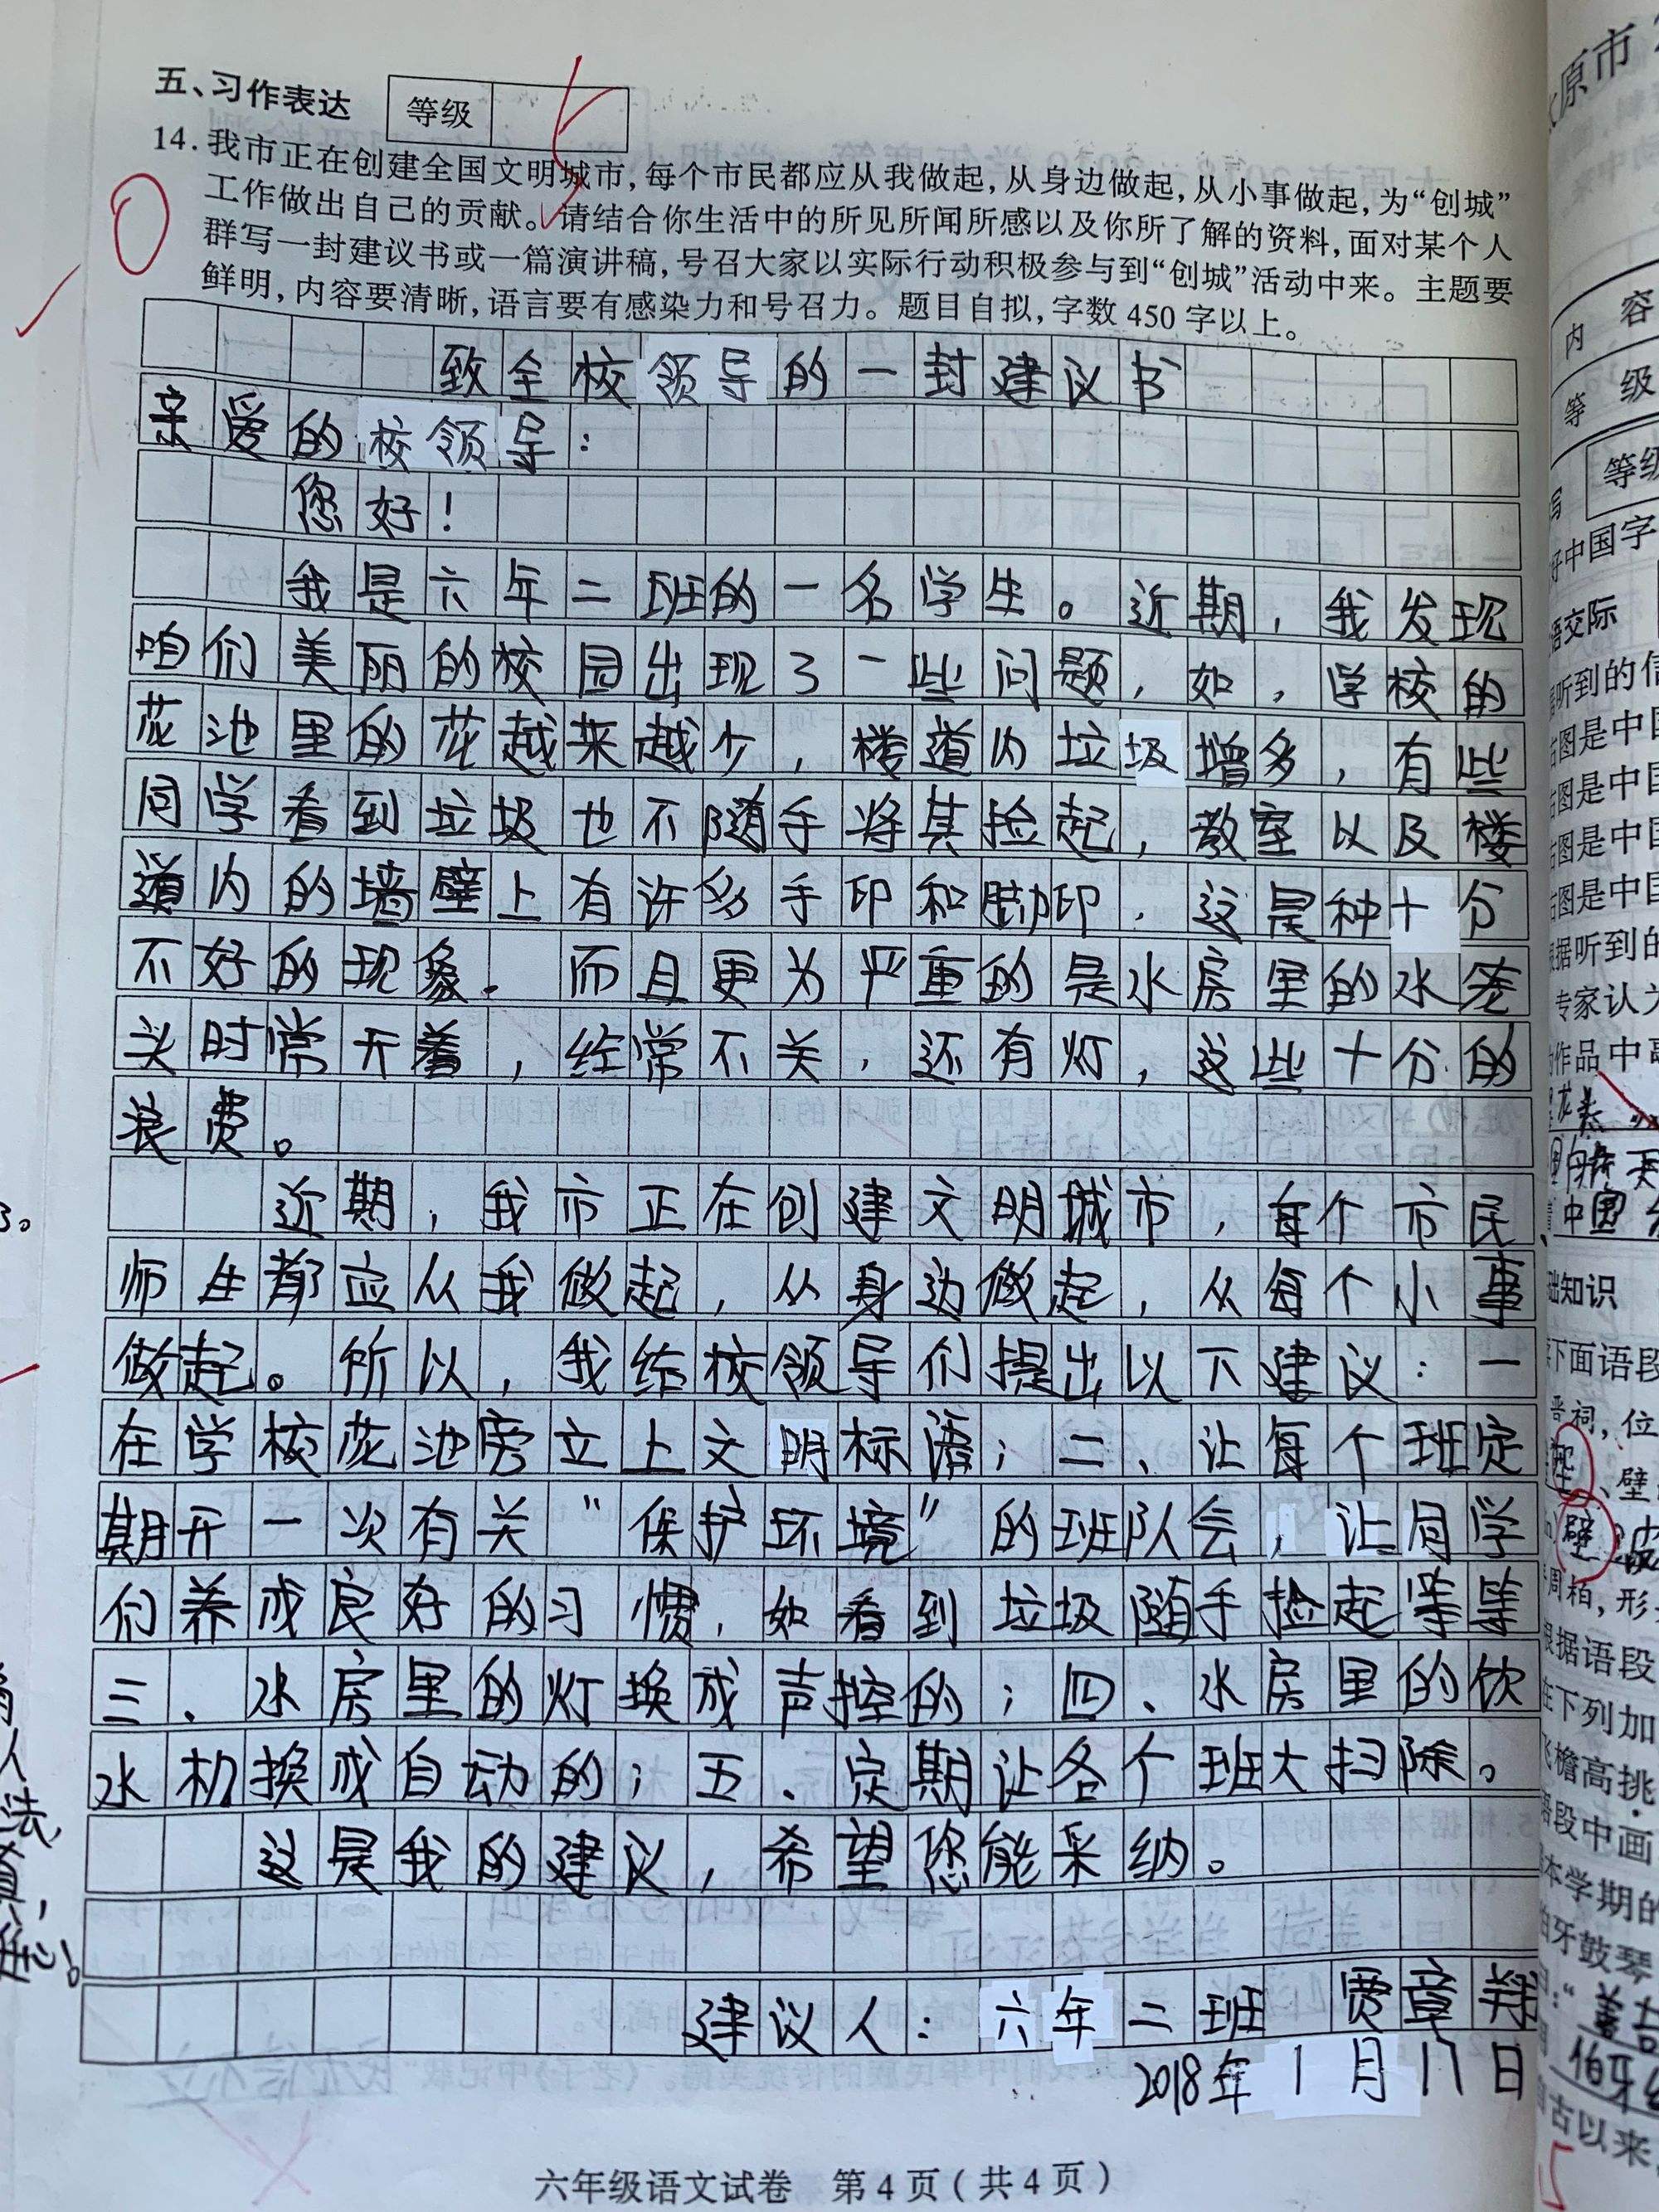 五、习作表达 等级
14.我市正在创建全国文明城市,每个市民都应从我做起,从身边做起,从小事做起,为“创城”
工作做出自己的贡献。请结合你生活中的所见所闻所感以及你所了解的资料,面对某个人
群写一封建议书或一篇演讲稿,号召大家以实际行动积极参与到“创城”活动中来。主题要
鲜明,内容要清晰,语言要有感染力和号召力。题目自拟,字数450字以上。
致全校领导的一封建议书
亲爱的校领导:
您好!
我是六年二班的一名学生。近期,我发现
咱们美丽的校园出现了一些问题,如,学校的
花池里的花越来越少,楼道内垃圾增多,有些
同学看到垃圾也不随手将其捡起,教室以及楼
道内的墙壁上有许多手印和脚印,这是种十分
不好的现象.而且更为严重的是水房里的水笼
头时常开着,经常不关,还有灯,这些十分的
浪费。
近期,我市正在创建文明城市,每个市民
师生都应从我做起,从身边做起,从每个小事
做起。所以,我给校领导们提出以下建议:一
在学校花池旁立上文明标语;二、让每个班定
期开一次有关“保护环境”的班队会,让同学
们养成良好的习惯,如看到垃圾随手捡起等等
三、水房里的灯换成声控的;四、水房里的饮
水机换成自动的;五、定期让各个班大扫除。
这是我的建议,希望您能采纳。
建议人:六年二班 贾章翔
2018年1月17日
六年级语文试卷 第4页(共4页)
原市
内 容
等 级
等级
好中国字
语交际
听到的信
右图是中国
右图是中国
右图是中国
右图是中国
根据听到的
专家认为
作品中
中国
础知识
下面语段
晋祠,位
壁
周柏,形
根据语段
在下列加
飞檐高挑
语段中画
本学期的
伯牙鼓琴
曰:“善
伯牙
自古以来